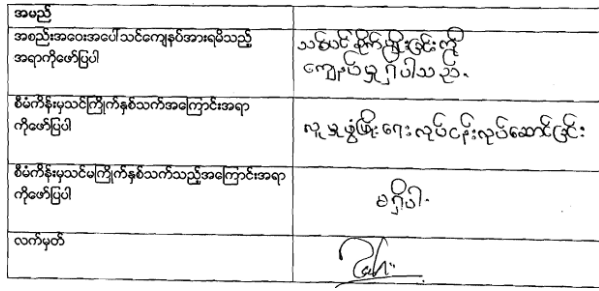 အမည်
အစည်းအဝေးအပေါ်သင်ကျေနပ်အားရမိသည့်
အရာကိုဖော်ပြပါ
သစ်ပင်စိုက်ပျိုးခြင်းကို
ကျေနပ်မှုရှိပါသည်.
စီမံကိန်းမှသင်ကြိုက်နှစ်သက်အကြောင်းအရာ
ကိုဖော်ပြပါ
လူမှုဖွံဖြိုးရေးလုပ်ငန်းလုပ်ဆောင်ခြင်း
စီမံကိန်းမှသင်မကြိုက်နှစ်သက်သည့်အကြောင်းအရာ
ကိုဖော်ပြပါ
မရှိပါ.
လက်မှတ်